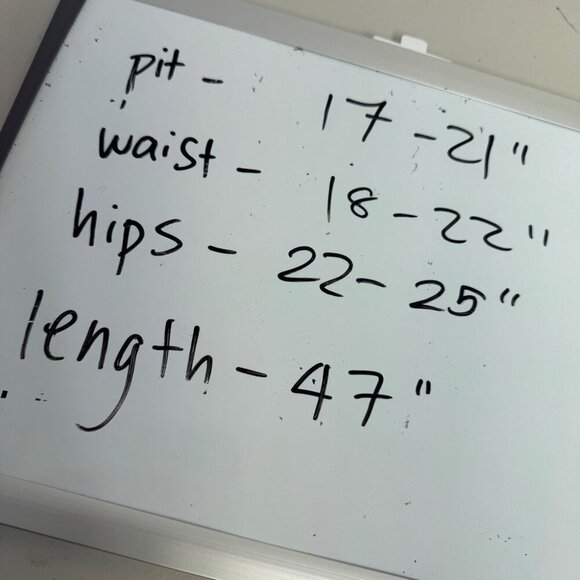 pit - 17 - 21"
waist - 18 - 22"
hips - 22 - 25"
length - 47"